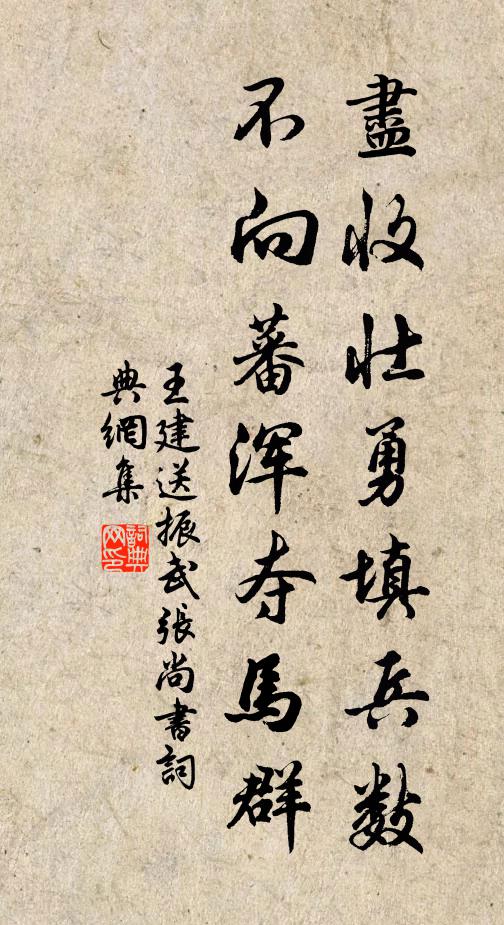 盡收壯勇填兵數
不向蕃浑夺馬群
王建送振武張尚書詞
典網集
詞典网印